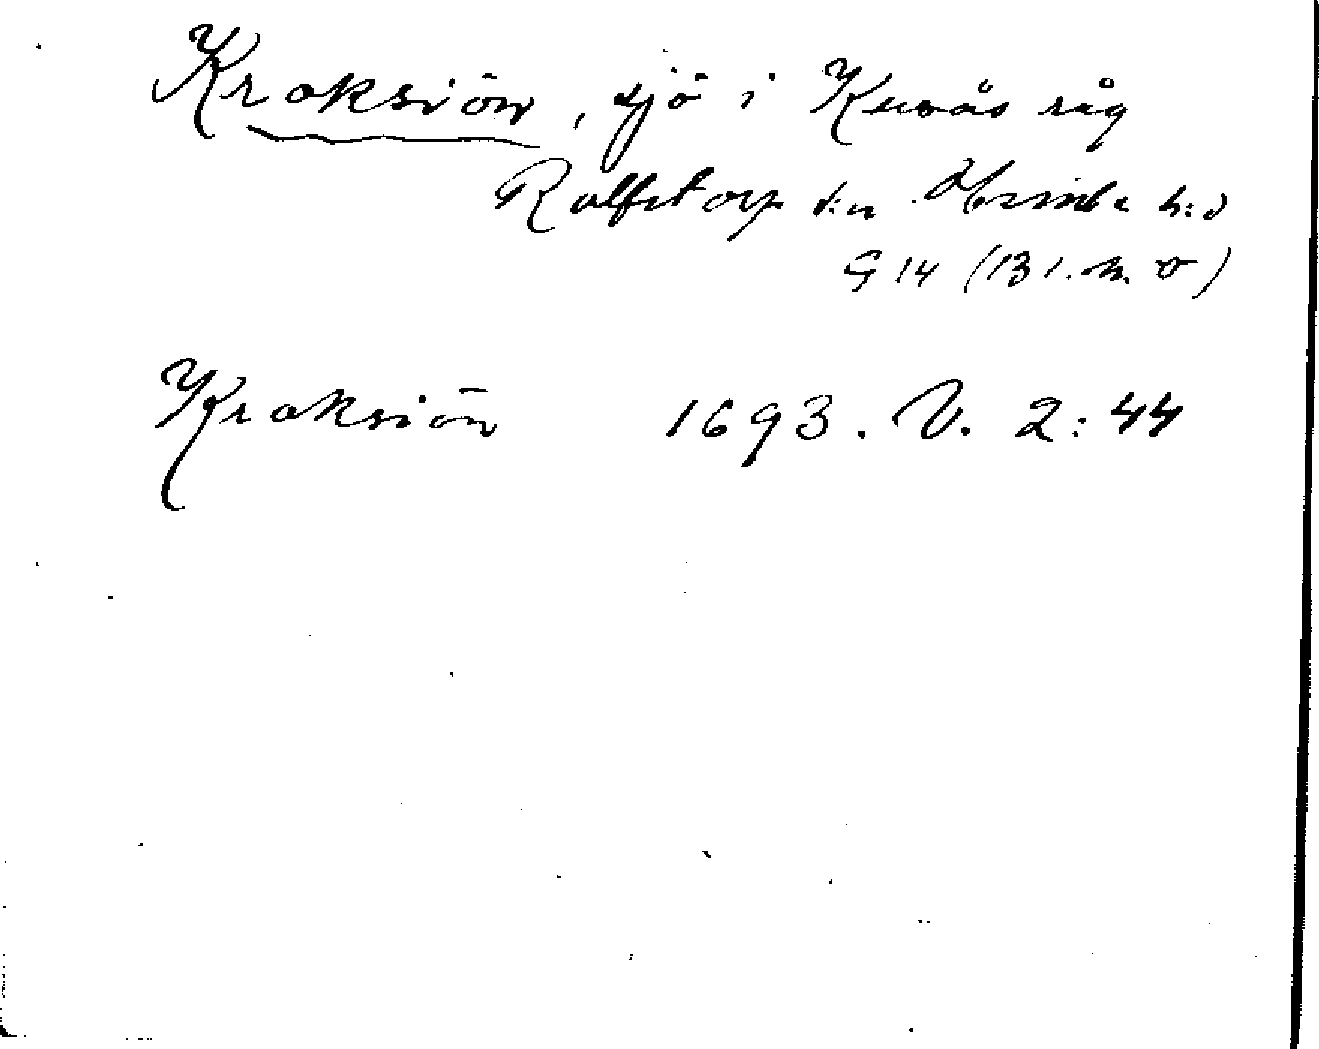 Kroksiön, sjö i Kuvås råg
Rolfstorp s:n Himle h:d
G 14 (13 1. m. O)
Kroksiön 1693. V. 2:44